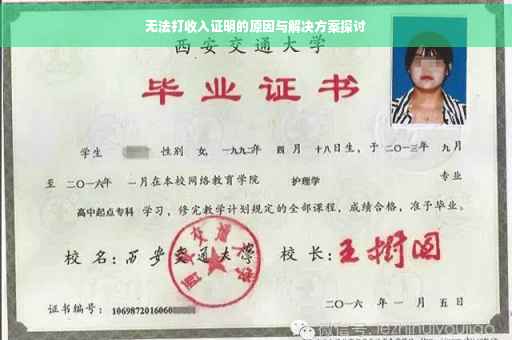 无法打收入证明的原因与解决方案探讨
西安交通大学
毕业证书
学生 性别 女, 一九九二年 四 月 十八日生, 于 二〇一三年 九月
至 二〇一六年 一月在本校网络教育学院 护理学 专业
高中起点专科 学习, 修完教学计划规定的全部课程, 成绩合格, 准予毕业。
校 名: 西安交通大学 校 长: 王树国
证书编号: 1069872016060
二〇一六 年 一 月 五 日
微信号: jezhinuiyoujiao